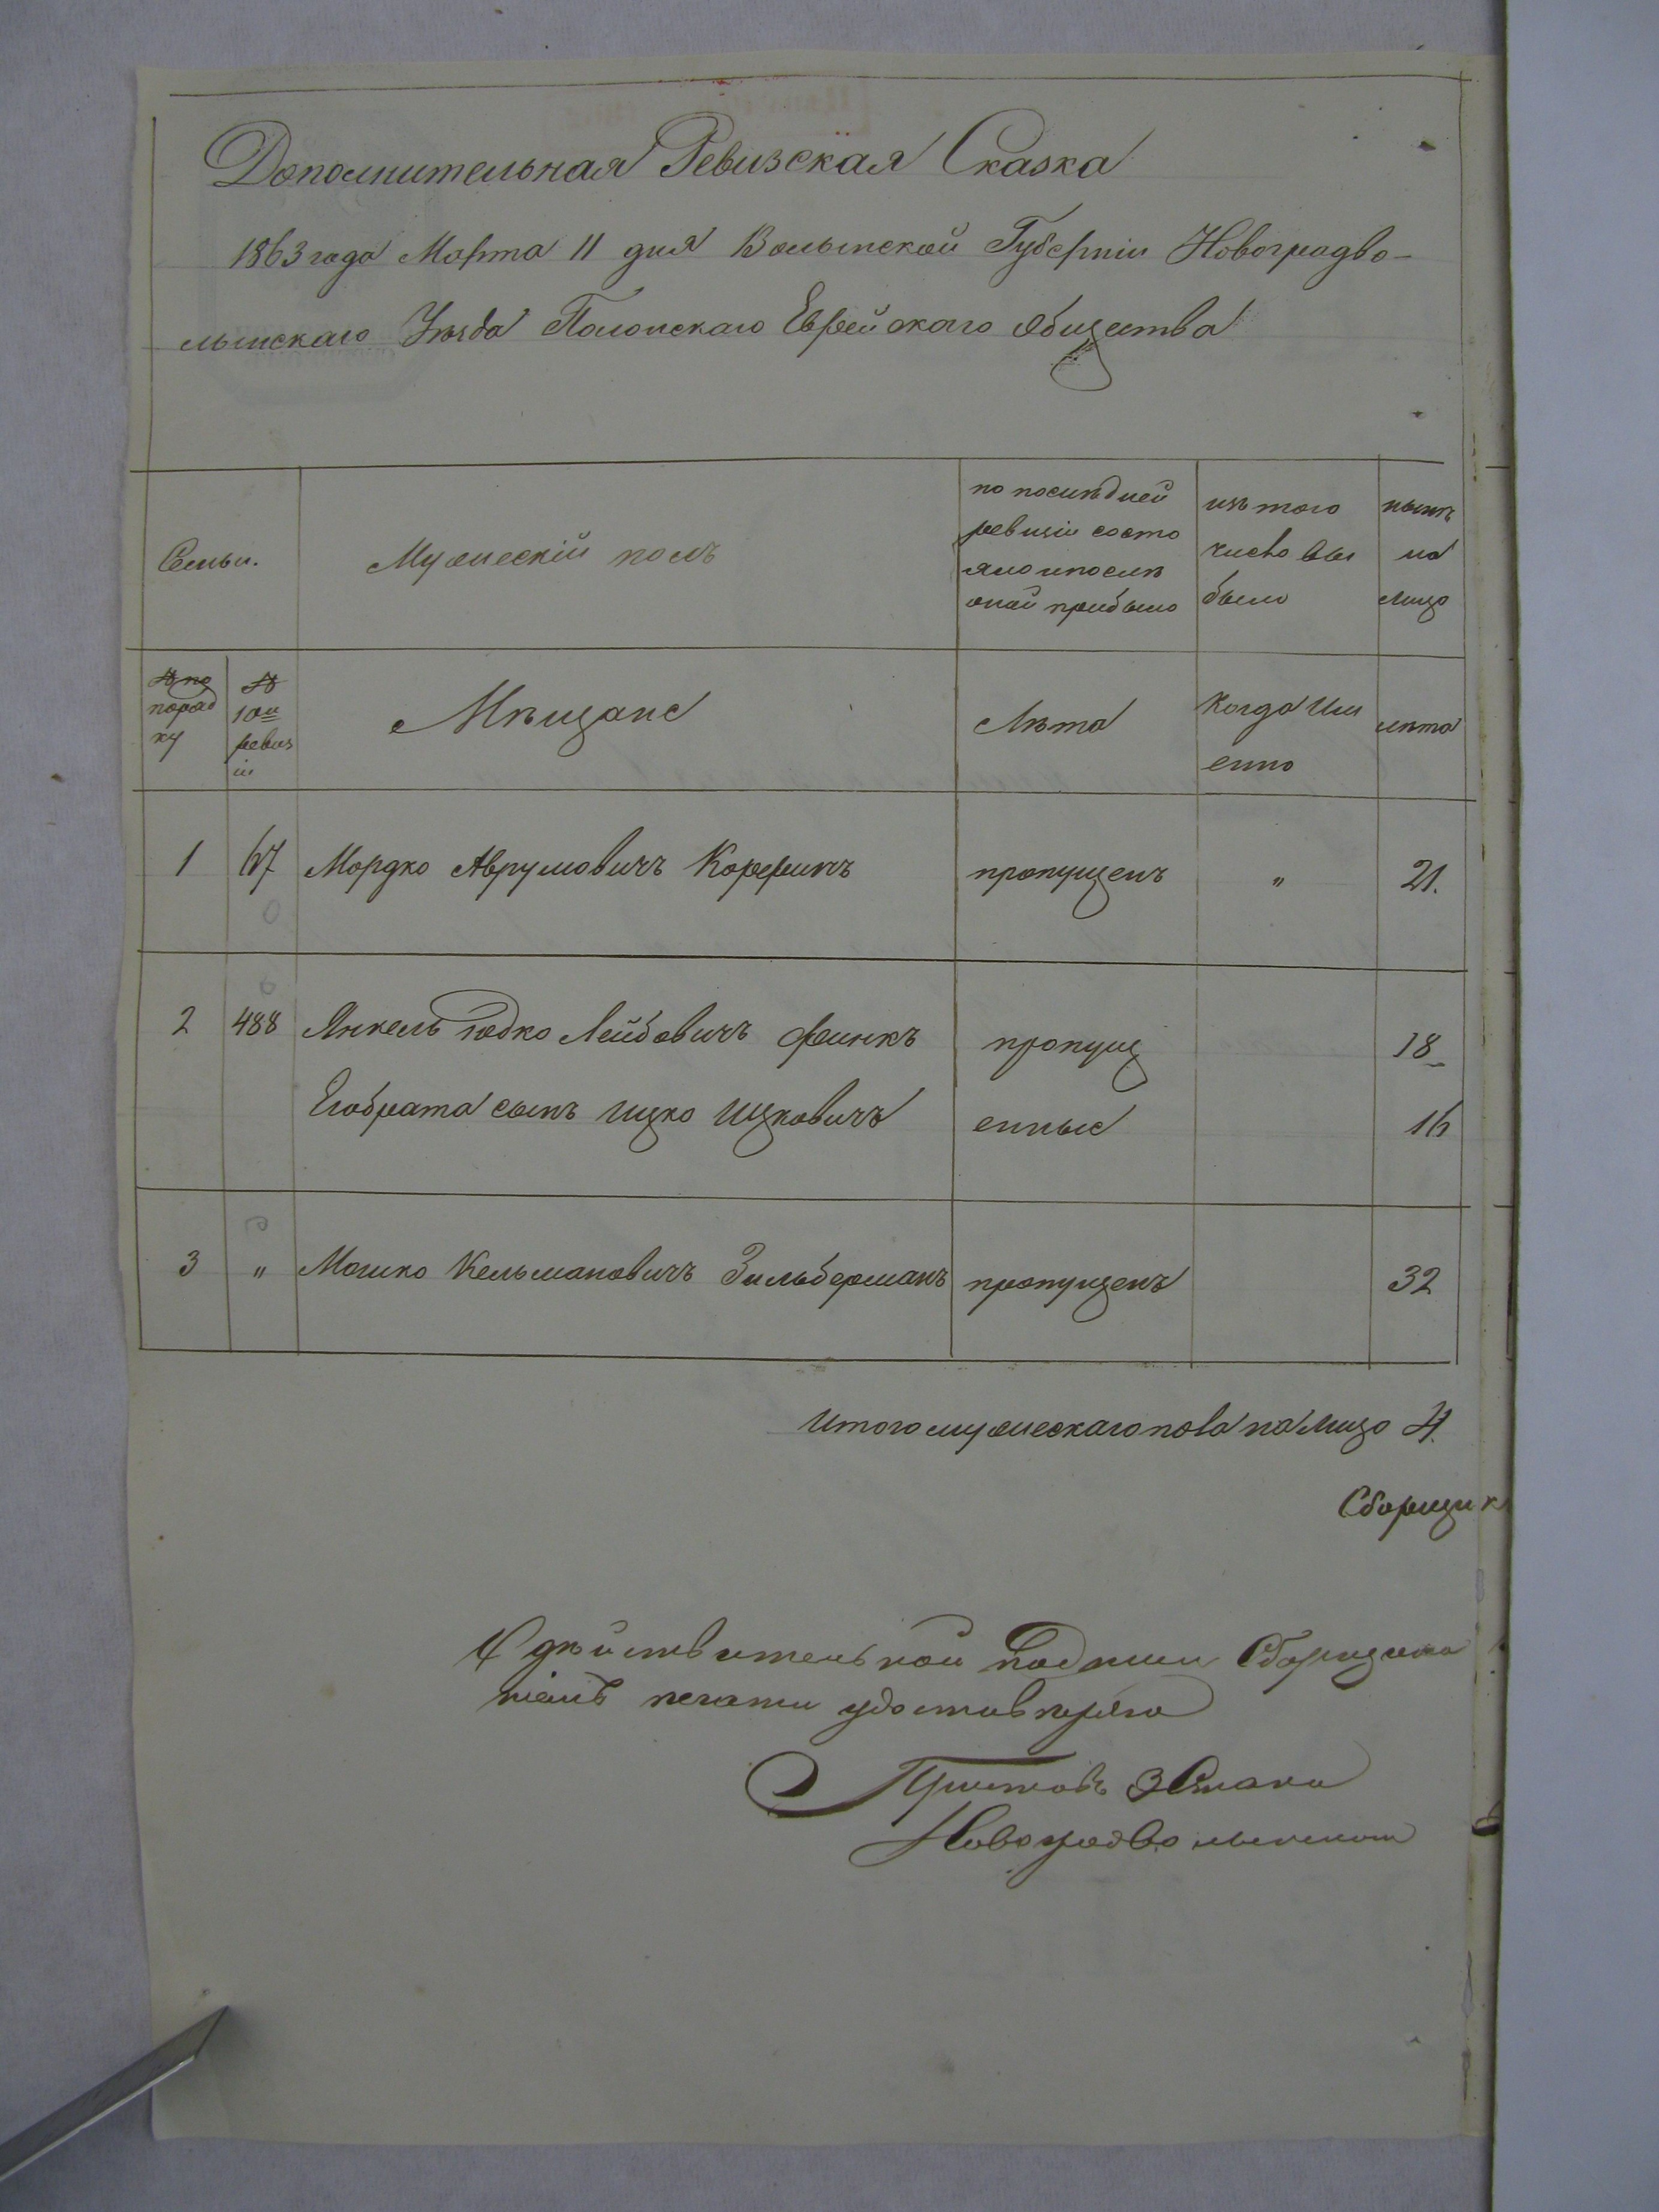 Дополнительная Ревизская Сказка
1863 года Марта 11 дня Волынской Губернiи Новоградво-
лынскаго Уѣзда Полонскаго Еврейскаго Общества
Семьи.
Мужескiй полъ
по послѣдней
ревизiи состо
яло и послѣ
оной прибыло
изъ того
числа вы
было
нынѣ
на
лицо
№ по
поряд
ку
№
10й
ревиз
iи
Мѣщане
Лѣта
Когда Им
енно
лѣта
1 67 Мордко Аврумовичъ Корфинъ пропущенъ " 21.
2 488 Янкель Юдко Лейбовичъ Финкъ пропущ 18
Его брата сынъ Ицко Ицковичъ енные 16
3 " Мошко Кельмановичъ Зильберманъ пропущенъ 32
Итого мужескаго пола на лицо 4.
Сборщик
дѣйствительной Сборщика
печати удостовѣряю
Приставъ 3 Стана
Новоградволынскаго